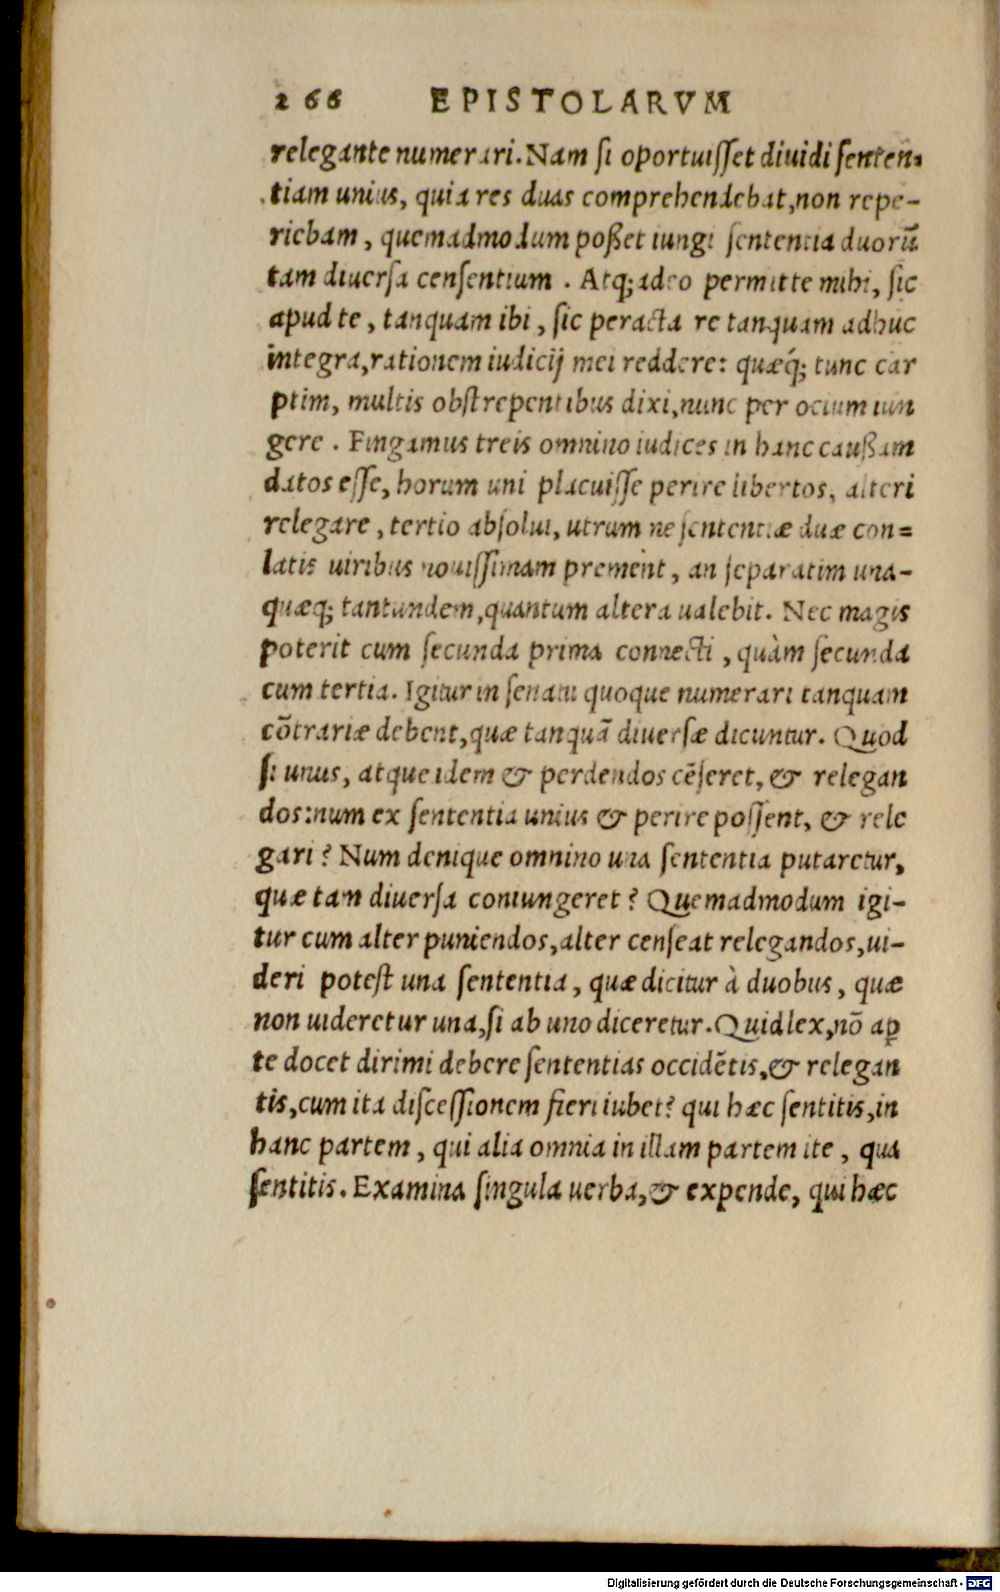 266 EPISTOLARVM
relegante numerari. Nam ſi oportuiſſet diuidi ſenten-
tiam unius, quia res duas comprehendebat, non repe-
riebam, quemadmodum poßet iungi ſententia duorũ
tam diuerſa cenſentium. Atq; adeo permitte mihi, ſic
apud te, tanquam ibi, ſic peracta re tanquam adhuc
integra, rationem iudicij mei reddere: quæq́; tunc car
ptim, multis obſtrepentibus dixi, nunc per ocium iun
gere. Fingamus treis omnino iudices in hanc caußam
datos eſſe, horum uni placuiſſe perire libertos, alteri
relegare, tertio abſolui, utrum ne ſententiæ duæ con=
latis uiribus nouiſſimam prement, an ſeparatim una-
quæq; tantundem, quantum altera ualebit. Nec magis
poterit cum ſecunda prima connecti, quàm ſecunda
cum tertia. Igitur in ſenatu quoque numerari tanquam
cõtrariæ debent, quæ tanquã diuerſæ dicuntur. Quod
ſi unus, atque idem & perdendos cẽſeret, & relegan
dos: num ex ſententia unius & perire poſſent, & rele
gari? Num denique omnino una ſententia putaretur,
quæ tam diuerſa coniungeret? Quemadmodum igi-
tur cum alter puniendos, alter cenſeat relegandos, ui-
deri poteſt una ſententia, quæ dicitur à duobus, quæ
non uideretur una, ſi ab uno diceretur. Quid lex, nõ aꝑ
te docet dirimi debere ſententias occidẽtis, & relegan
tis, cum ita diſceſſionem fieri iubet? qui hæc ſentitis, in
hanc partem, qui alia omnia in illam partem ite, qua
ſentitis. Examina ſingula uerba, & expende, qui hæc
Digitalisierung gefördert durch die Deutsche Forschungsgemeinschaft - DFG